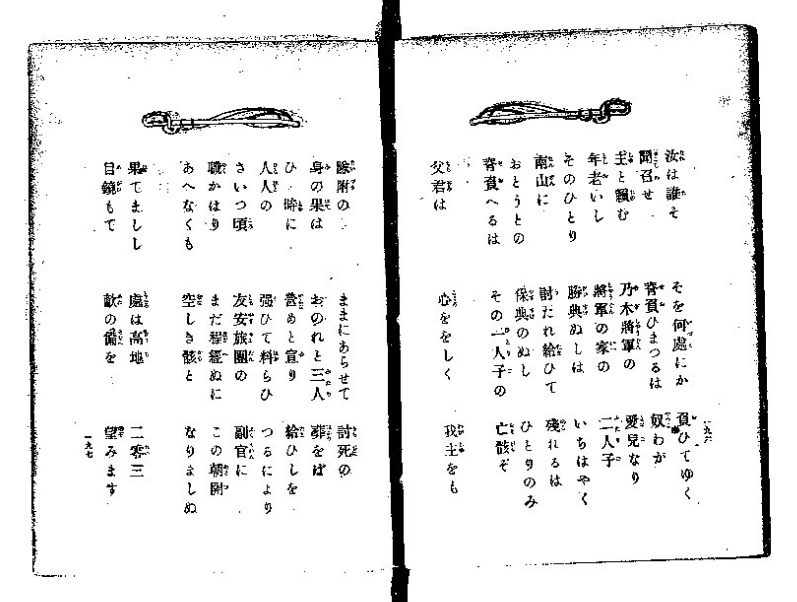 汝は誰そ　そを何處にか　負ひてゆく
聞召せ　脊負ひまつるは　奴わが
主と頼む　乃木將軍の　愛兒なり
年老いし　將軍の家の　二人子
そのひとり　勝典ぬしは　いちはやく
南山に　討たれ給ひて　殘れるは
おとうとの　保典のぬし　ひとりのみ
脊負へるは　その一人子の　亡骸ぞ
父君は　心ををしく　我主をも
一九六
隊附の　ままにあらせて　討死の
身の果は　おのれと三人　葬をば
ひと時に　營めと宣り　給ひしを
人人の　强ひて料らひ　つるにより
さいつ頃　友安旅團の　副官に
職かはり　まだ程經ぬに　この朝開
あへなくも　空しき骸と　なりましぬ
果てましし　處は高地　二零三
目鏡もて　敵の備を　望みます
一九七